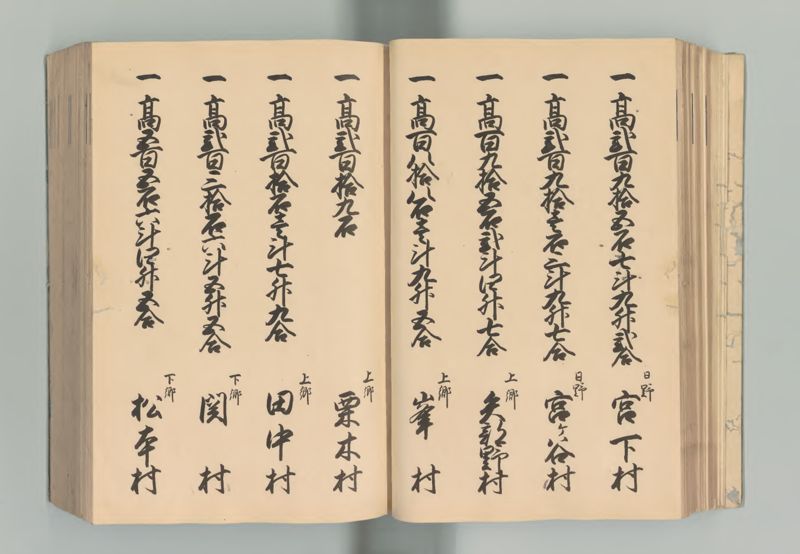 一 高弐百九拾五石七斗九升弐合 日野 宮下村
一 高弐百九拾壱石三斗九升七合 日野 宮ヶ谷村
一 高百九拾五石弐斗四升七合 上郷 矢部野村
一 高百八拾八石壱斗九升五合 上郷 峯村
一 高弐百拾九石 上郷 栗木村
一 高弐百拾石壱斗七升九合 上郷 田中村
一 高弐百三拾石六斗五升五合 下郷 関村
一 高五百五石六斗四升五合 下郷 松本村